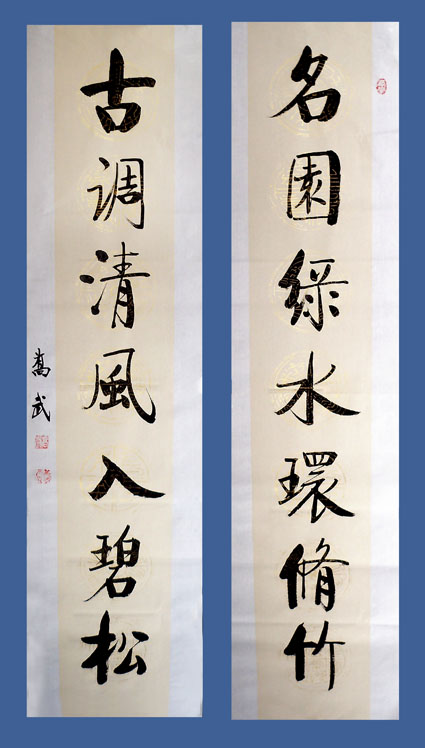 名園綠水環脩竹
古調清風入碧松
嵩武